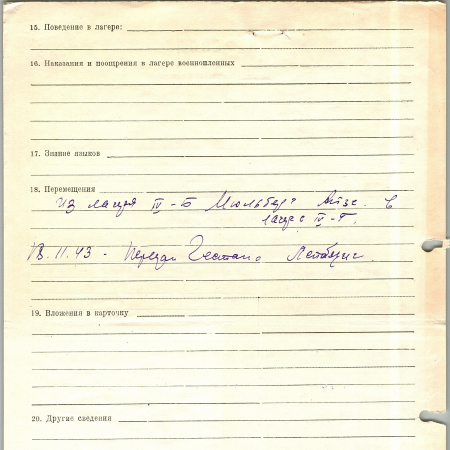 15. Поведение в лагере:
16. Наказания и поощрения в лагере военнопленных
17. Знание языков
18. Перемещения
Из лагеря IV-Б Мюльберг в
лагерь IV-Г.
18.11.43 - передан Гестапо Лейпциг.
19. Вложения в карточку
20. Другие сведения